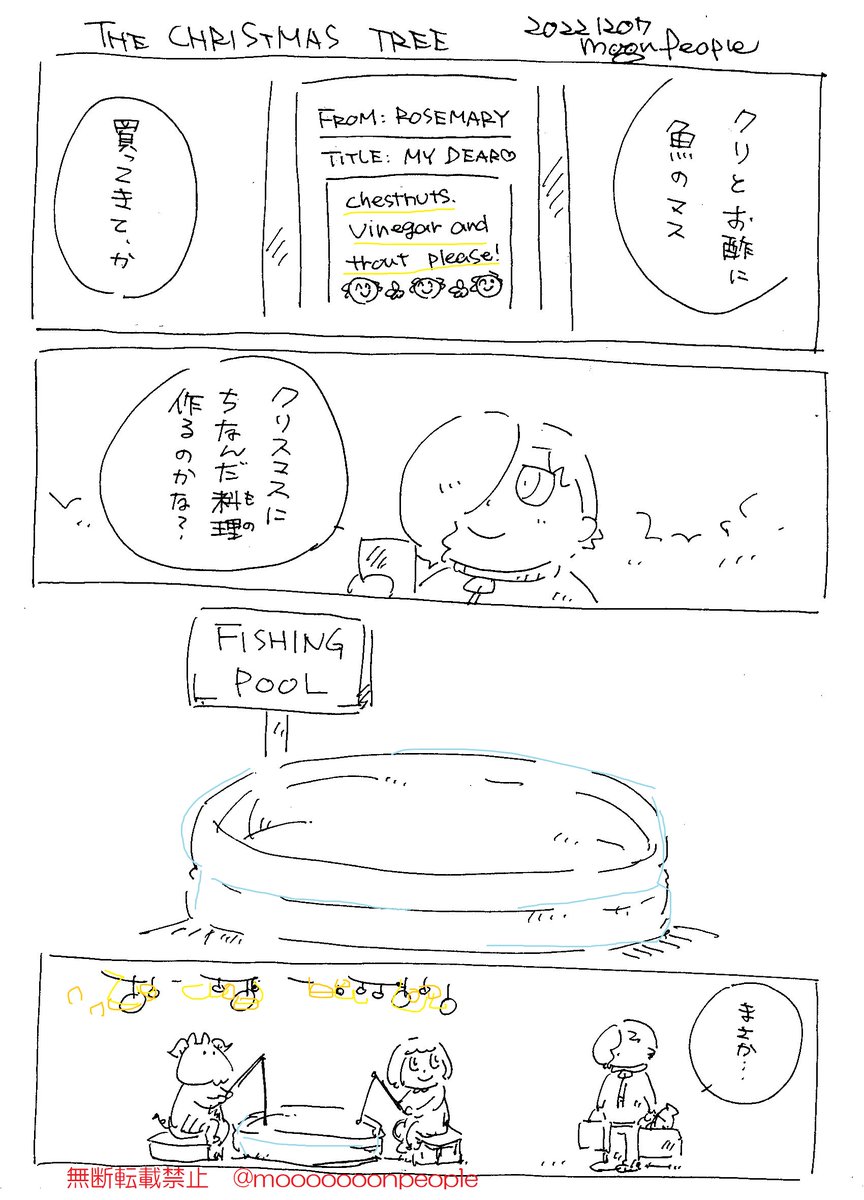 THE CHRISTMAS TREE
20221207
moonpeople
クリとお酢に
魚のマス
FROM: ROSEMARY
TITLE: MY DEAR♡
chestnuts.
vinegar and
trout please!
買ってきて、か
クリスマスに
ちなんだ料理
もの
作るのかな?
FISHING
POOL
まさか…
無断転載禁止 @mooooooonpeople